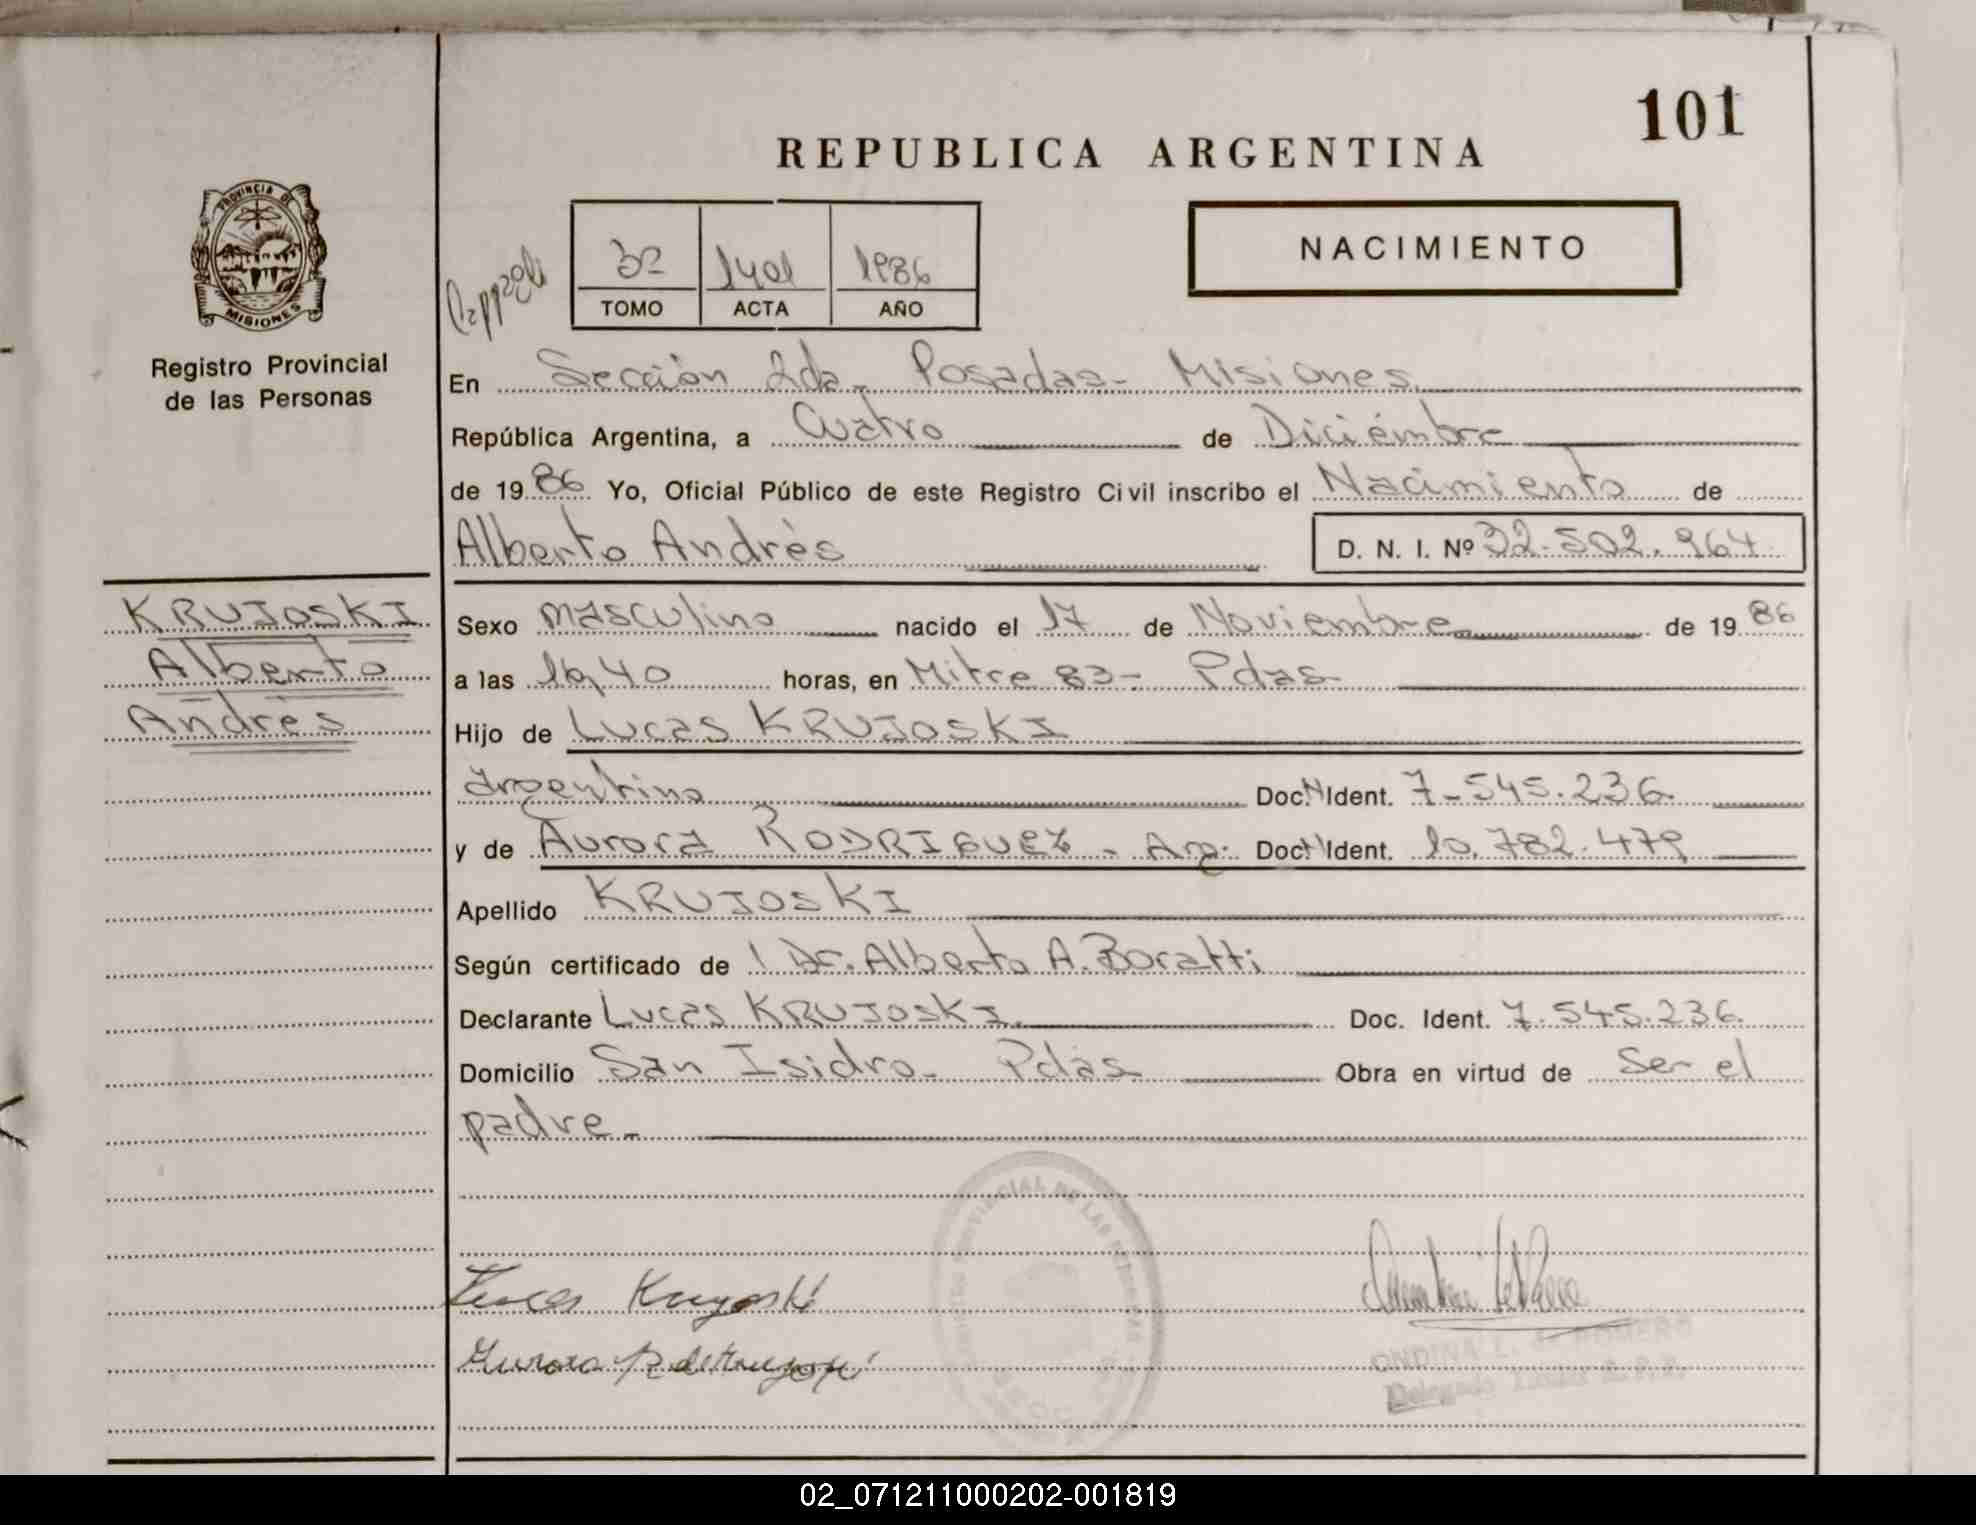 101
REPUBLICA ARGENTINA
PROVINCIA DE
MISIONES
Registro Provincial
de las Personas
3º 1401 1986
TOMO ACTA AÑO
NACIMIENTO
En Sección 2da. Posadas- Misiones
República Argentina, a Cuatro de Diciémbre
de 1986 Yo, Oficial Público de este Registro Civil inscribo el Nacimiento de
Alberto Andrès D. N. I. Nº 32.502.964
KRUJOSKI
Alberto
Andrés
Sexo masculino nacido el 17 de Noviembre de 1986
a las 19,40 horas, en Mitre 83- Pdas-
Hijo de Lucas KRUJOSKI
argentino Doc.N Ident. 7-545.236
y de Aurora RODRIGUEZ - Arg. Doc.N Ident. 10.782.479
Apellido KRUJOSKI
Según certificado de l Dr. Alberto A. Boratti
Declarante Lucas KRUJOSKI. Doc. Ident. 7.545.236
Domicilio San Isidro- Pdas Obra en virtud de Ser el
padre-
PROVINCIAL DE LAS PERSONAS
Lucas Krujoski
Aurora R de Krujoski
ONDINA
Delegado
02_071211000202-001819